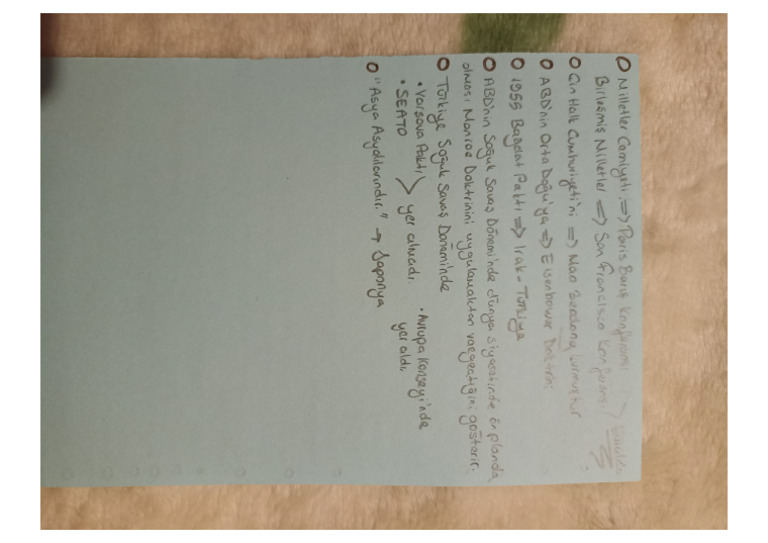 Milletler Cemiyeti => Paris Barış Konferansı
Birleşmiş Milletler => San Francisco Konferansı
Çin Halk Cumhuriyeti'ni => Mao Zedong kurmuştur
ABD'nin Orta Doğu'ya => Eisenhower Doktrini
1955 Bağdat Paktı => Irak - Türkiye
ABD'nin Soğuk Savaş Dönemi'nde dünya siyasetinde ön planda
olması Monroe Doktrinini uygulamaktan vazgeçtiğini gösterir.
Türkiye Soğuk Savaş Dönemi'nde
• Varşova Paktı
• SEATO > yer almadı.
• Avrupa Konseyi'nde
yer aldı.
"Asya Asyalılarındır." → Japonya